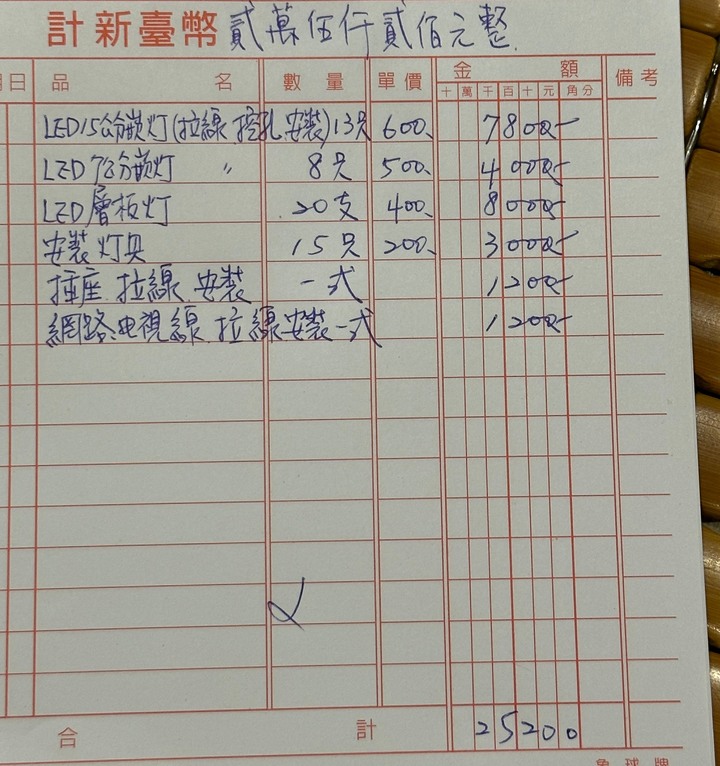 計新臺幣 貳萬伍仟貳佰元整
月日 品名 數量 單價 金額 備考
十 萬 千 百 十 元 角 分
LED15公分嵌灯(拉線.挖孔.安裝) 13只 600. 7800.-
LED 7公分嵌灯 〃 8只 500. 4000.-
LED 層板灯 20支 400. 8000.-
安裝灯具 15只 200. 3000.-
插座.拉線.安裝 一式 1200.-
網路、电視線.拉線安裝一式 1200.-
合計 25200
象球牌